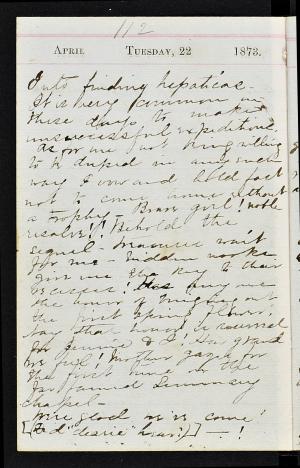 112
APRIL TUESDAY, 22 1873.
into finding hepaticas.
It is very common in
these days to make
unsuccessful expeditions
As for me not being willing
to be duped in any such
way I vow and hold fast
not to come home without
a trophy - Brave girl! noble
resolve!! Behold the
sequel - Treasures wait
for me - hidden nooks
give me the key to their
recesses! buy me
the honor of bringing out
the first spring flower!
Nay that honor is reserved
for Jennie & I! How grand
we feel! Mother gazes for
the first time in the
far famed Seminary
chapel -
We're glad we've come!
"dearie" hour!)] - !